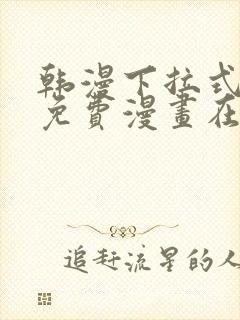 韩漫下拉式
免費漫畫在
追赶流星的人